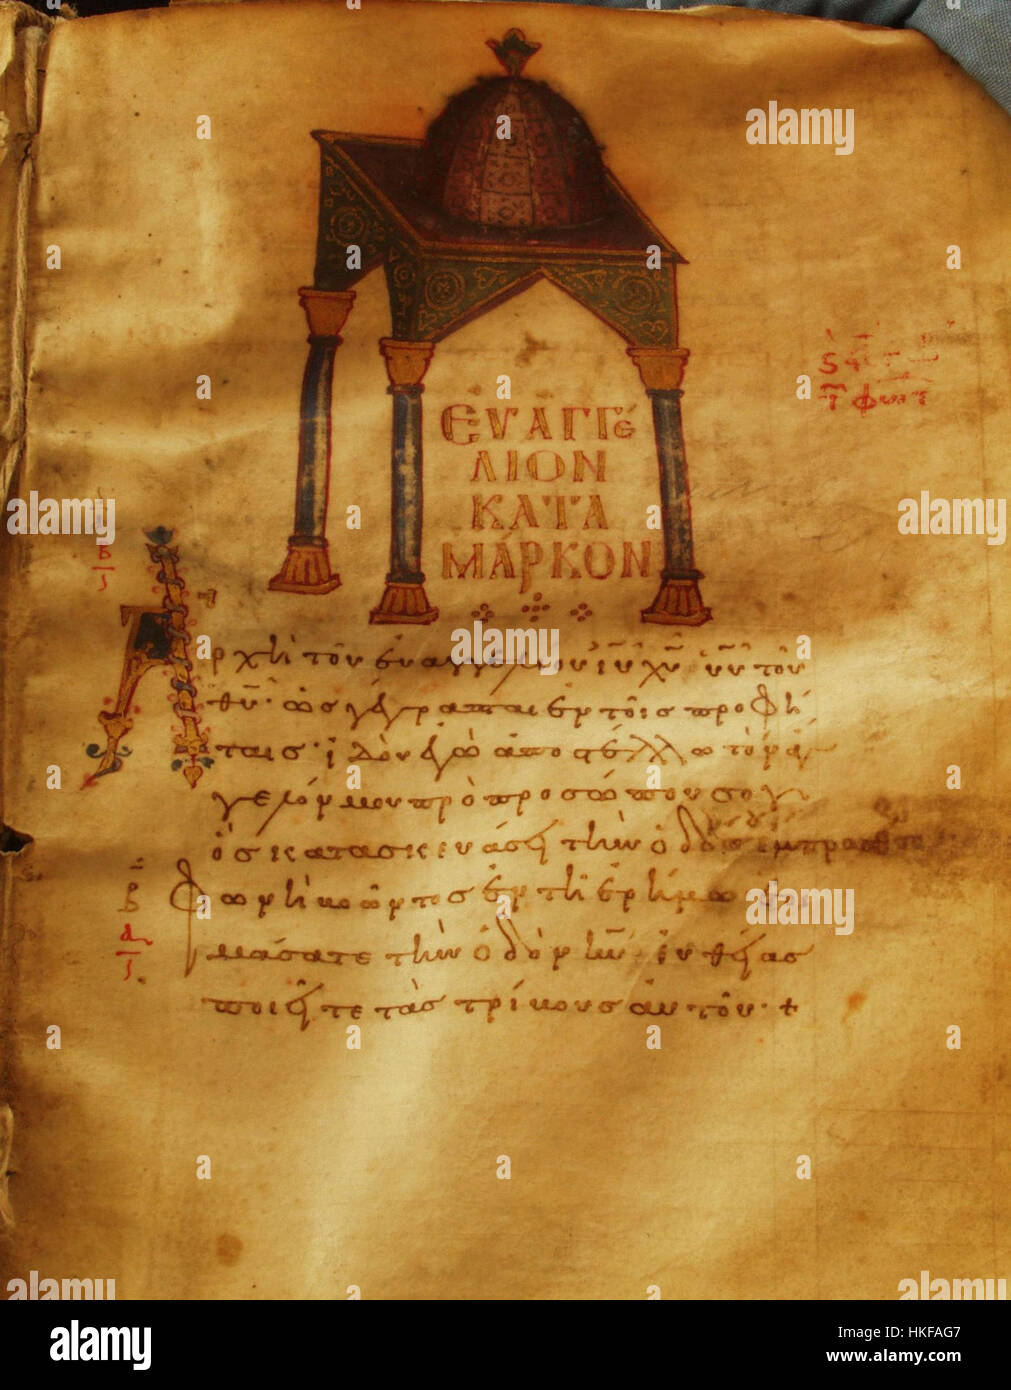 ΕΥΑΓΓΕ
ΛΙΟΝ
ΚΑΤΑ
ΜΑΡΚΟΝ
Ἀρχὴ τοῦ εὐαγγελίου ιυ χυ υυ τοῦ
θυ· ὡς γέγραπται ἐν τοῖς προφή
ταις· ἰδοὺ ἐγὼ ἀποστέλλω τὸν ἄγ
γελόν μου πρὸ προσώπου σου
ὃς κατασκευάσει τὴν ὁδόν σου ἔμπροσθεν
Φωνὴ βοῶντος ἐν τῇ ἐρήμω ἑτοι
μάσατε τὴν ὁδὸν κυ· εὐθείας
ποιεῖτε τὰς τρίβους αὐτοῦ· +
alamy
Image ID: HKFAG7
www.alamy.com